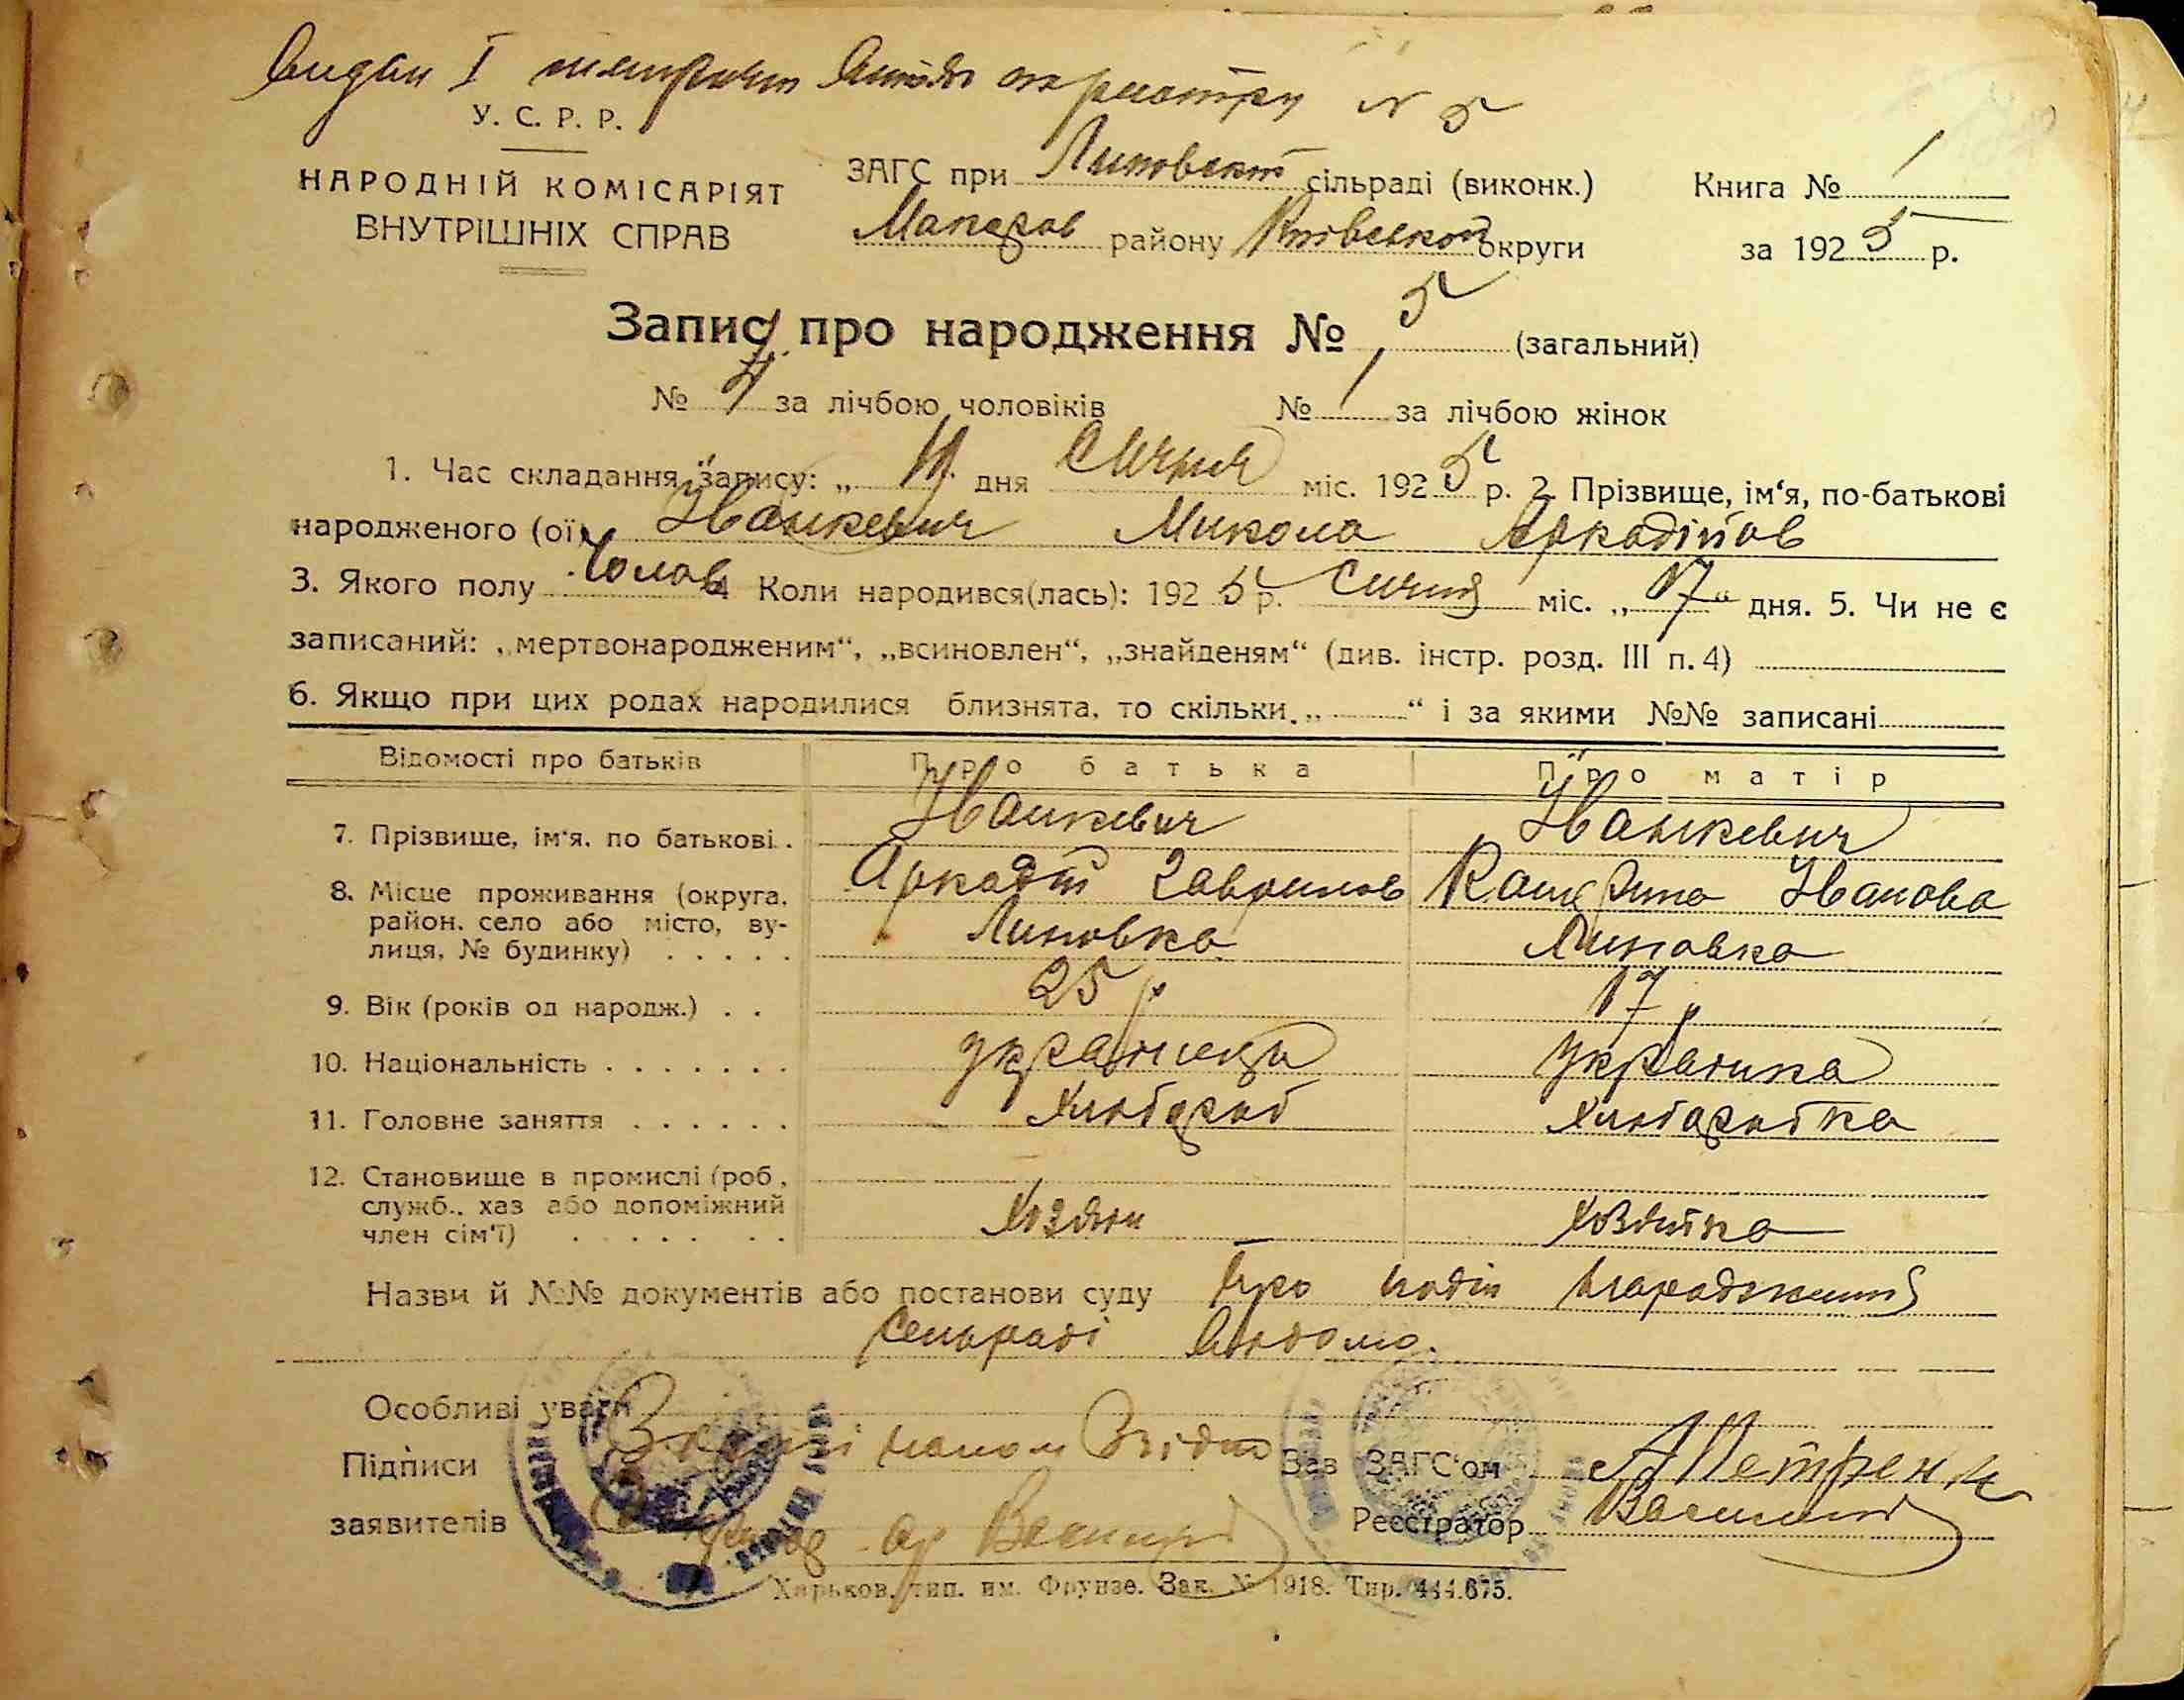 Видан I
N 5
У. С. Р. Р.
НАРОДНІЙ КОМІСАРІЯТ
ВНУТРІШНІХ СПРАВ
ЗАГС при Липовскій сільраді (виконк.)
Макаров району Київської округи
Книга № 1
за 1925 р.
Запис про народження № 5 (загальний)
№ 4 за лічбою чоловіків № 1 за лічбою жінок
1. Час складання запису: „ дня Січня міс. 1925 р. 2. Прізвище, ім‘я, по-батькові
народженого (ої) Іванкевич Микола Аркадійов
3. Якого полу Чолов 4 Коли народився(лась): 1925 р. Січня міс. „17“ дня. 5. Чи не є
записаний: „мертвонародженим“, „всиновлен“, „знайденям“ (див. інстр. розд. III п. 4)
6. Якщо при цих родах народилися близнята, то скільки „ “ і за якими №№ записані
Відомості про батьків Про батька Про матір
7. Прізвище, ім‘я, по батькові . Іванкевич Іванкевич
Аркадій Гаврилов Катерина Іванова
8. Місце проживання (округа,
район, село або місто, ву-
лиця, № будинку) . . . . . Липовка Липовка
9. Вік (років од народж.) . . 25 р 17 р
10. Національність . . . . . . . українець українка
11. Головне заняття . . . . . . Хлібороб Хліборобка
12. Становище в промислі (роб.,
служб., хаз або допоміжний
член сім‘ї) . . . . . . . Хозяїн Хозяйка
Назви й №№ документів або постанови суду Про подію народження
Сельраді відомо.
Особливі уваги
Підписи
заявителів
Зав ЗАГС‘ом А Петренк
Реєстратор
Харьков, тип. им. Фрунзе. Зак. № 1918. Тир. 444.675.